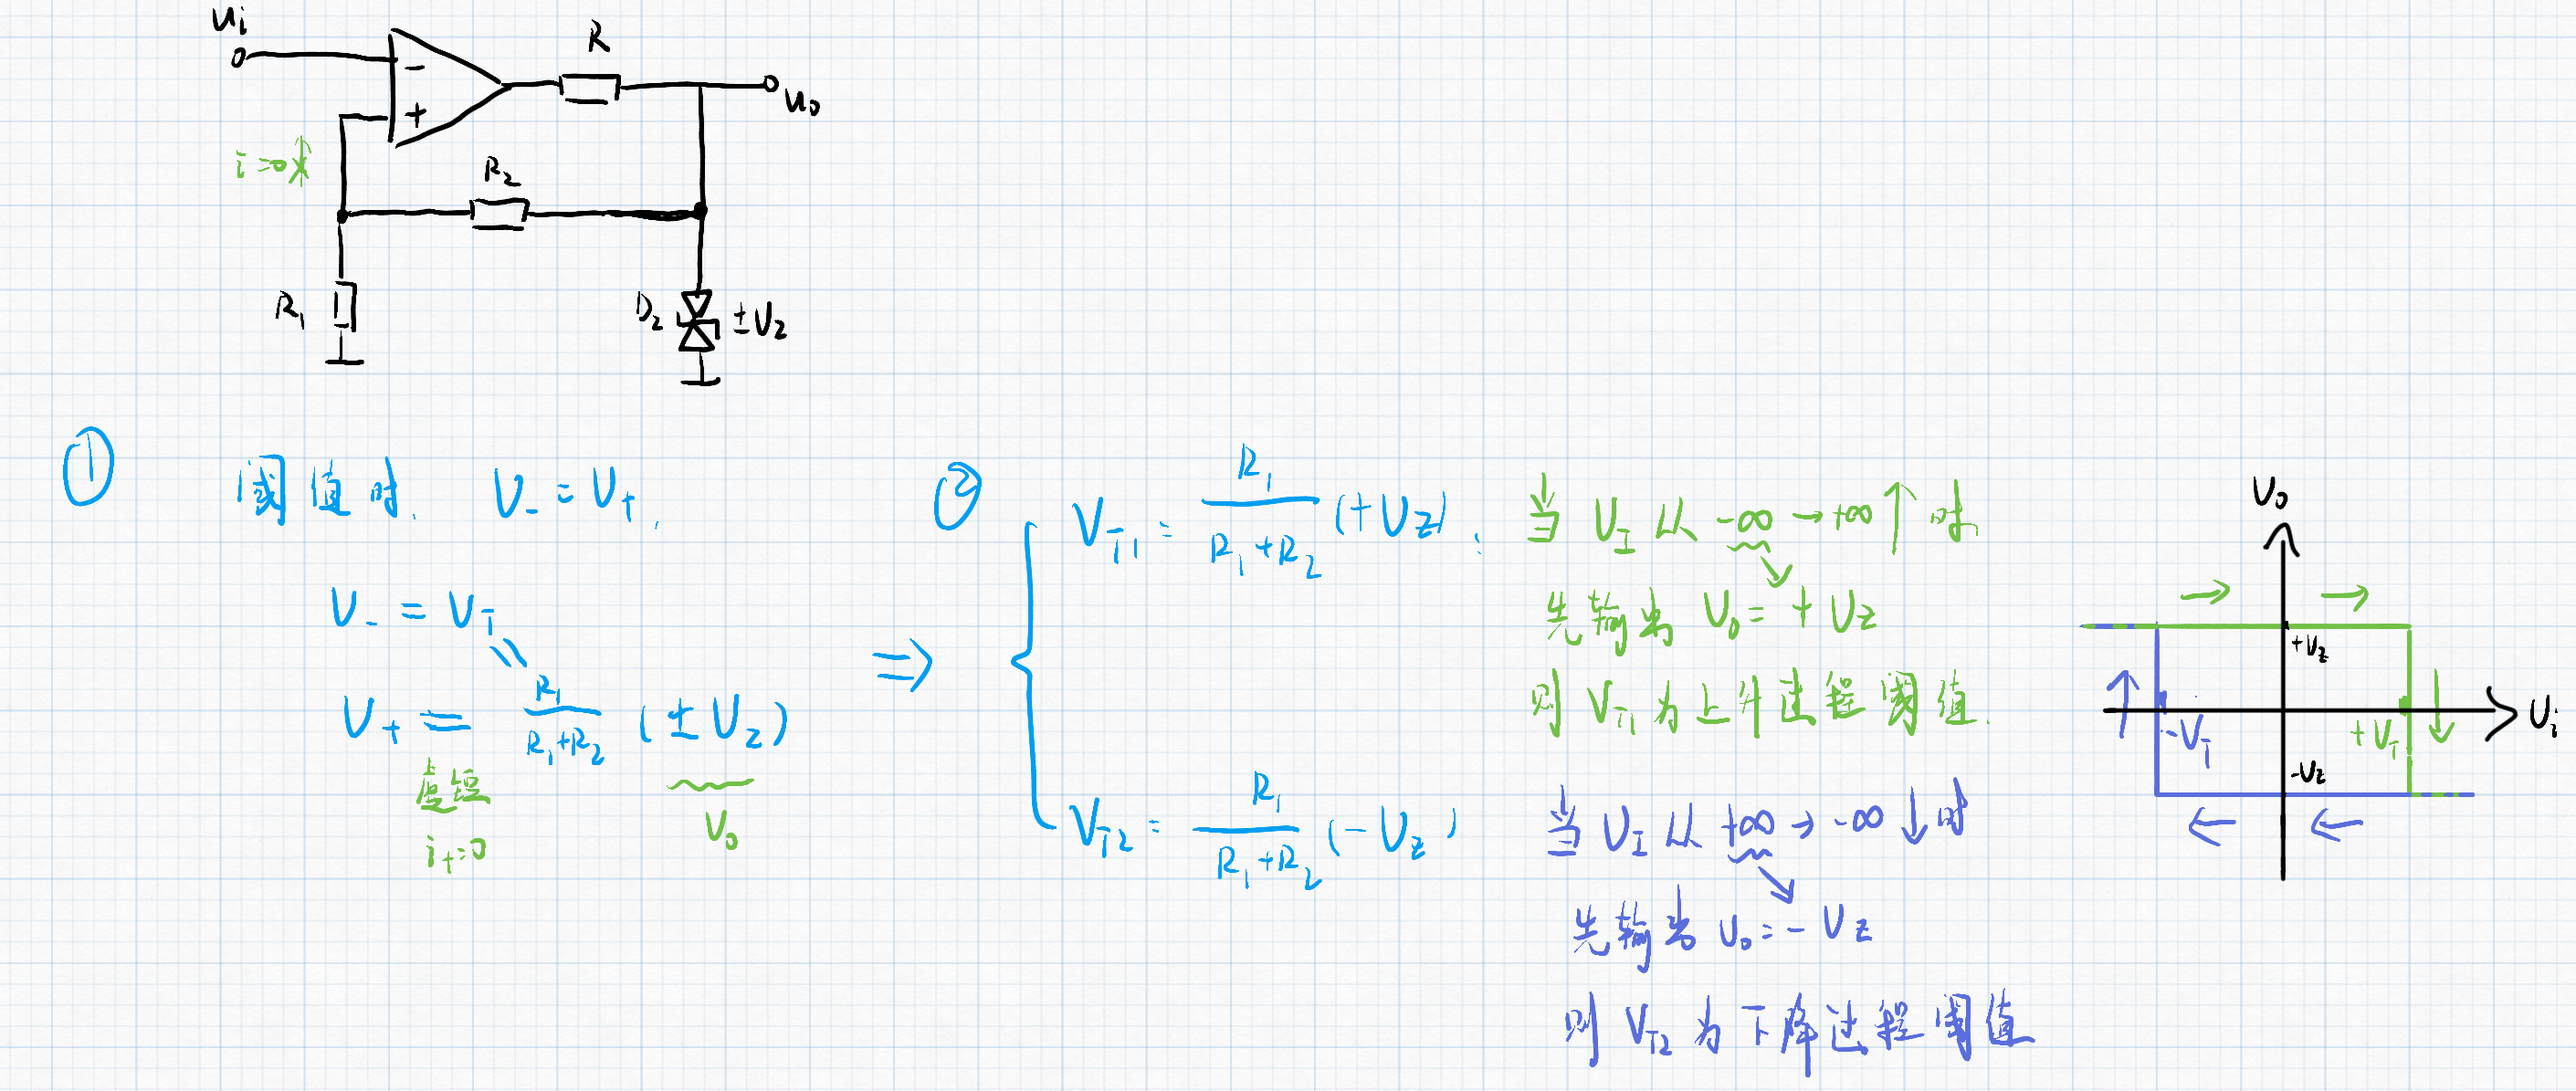 Ui
R
Uo
i=0
R₂
R₁
D₂
±Uz
①
阈值时. U₋=U₊.
U₋=U_T
U₊=R₁/(R₁+R₂)(±Uz)
虚短
i₊=0
U₀
②
⇒
U_T1=R₁/(R₁+R₂)(+Uz):
U_T2=R₁/(R₁+R₂)(-Uz)
当U_I从-∞→+∞↑时
先输出U₀=+Uz
则U_T1为上升过程阈值.
当U_I从+∞→-∞↓时
先输出U₀=-Uz
则U_T2为下降过程阈值
U₀
+Uz
-U_T
+U_T
Ui
-Uz